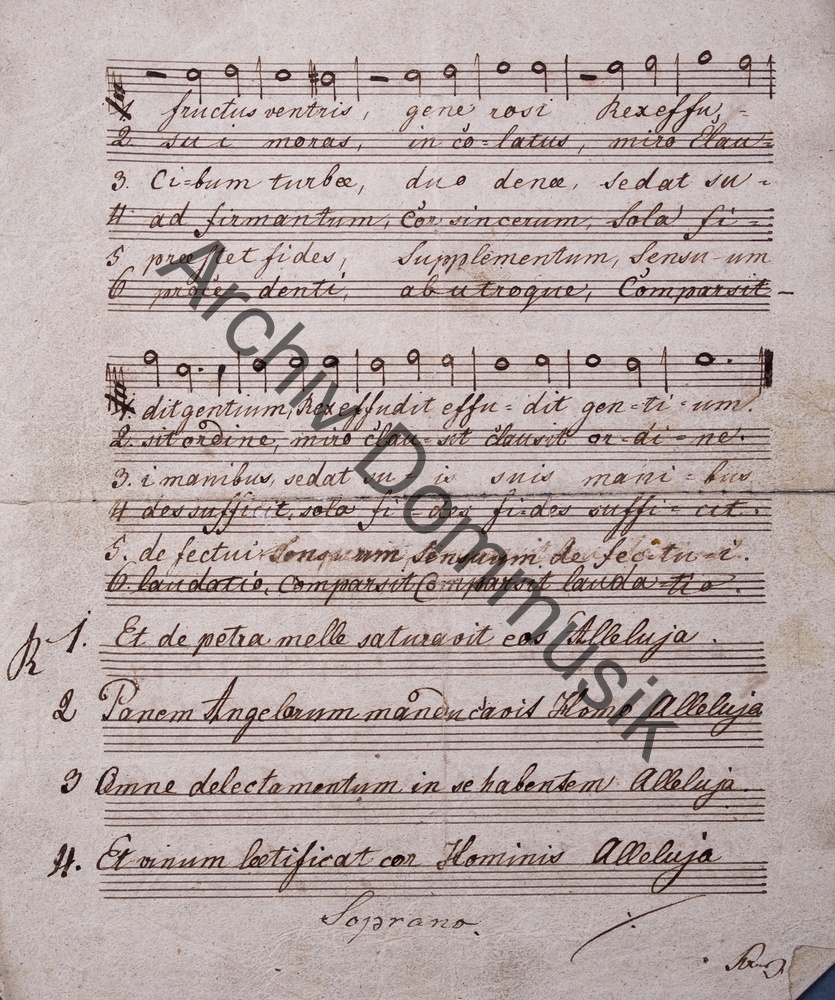 1 fructus ventris, gene rosi Rex effu,-
2. su i moras, in co=latus, miro Clau=
3. Ci=bum turbæ, duo denæ, sedat su-
4 ad firmantum, Cor sincerum, Sola fi=
5 præstet fides, Supplementum, Sensu-um
6 denti, ab utroque, Comparsit-
dit gentium, Rex effudit effu=dit gen=ti-um.
2. sit ordine, miro clau-sit clausit or-di-ne.
3. i manibus, sedat su is suis mani=bus
4 des sufficit, sola fi-des fi=des suffi-cit.
5. de fectui Sensuum, Sensuum de fec-tu-i.
6. laudatio, Comparsit Comparsit lauda-tio.
R 1. Et de petra melle saturavit eos Alleluja.
2 Panem Angelorum manducavis Homo Alleluja
3 Omne delectamentum in se habentem Alleluja.
4. Et vinum lætificat cor Hominis Alleluja
Soprano.
Archiv Dommusik